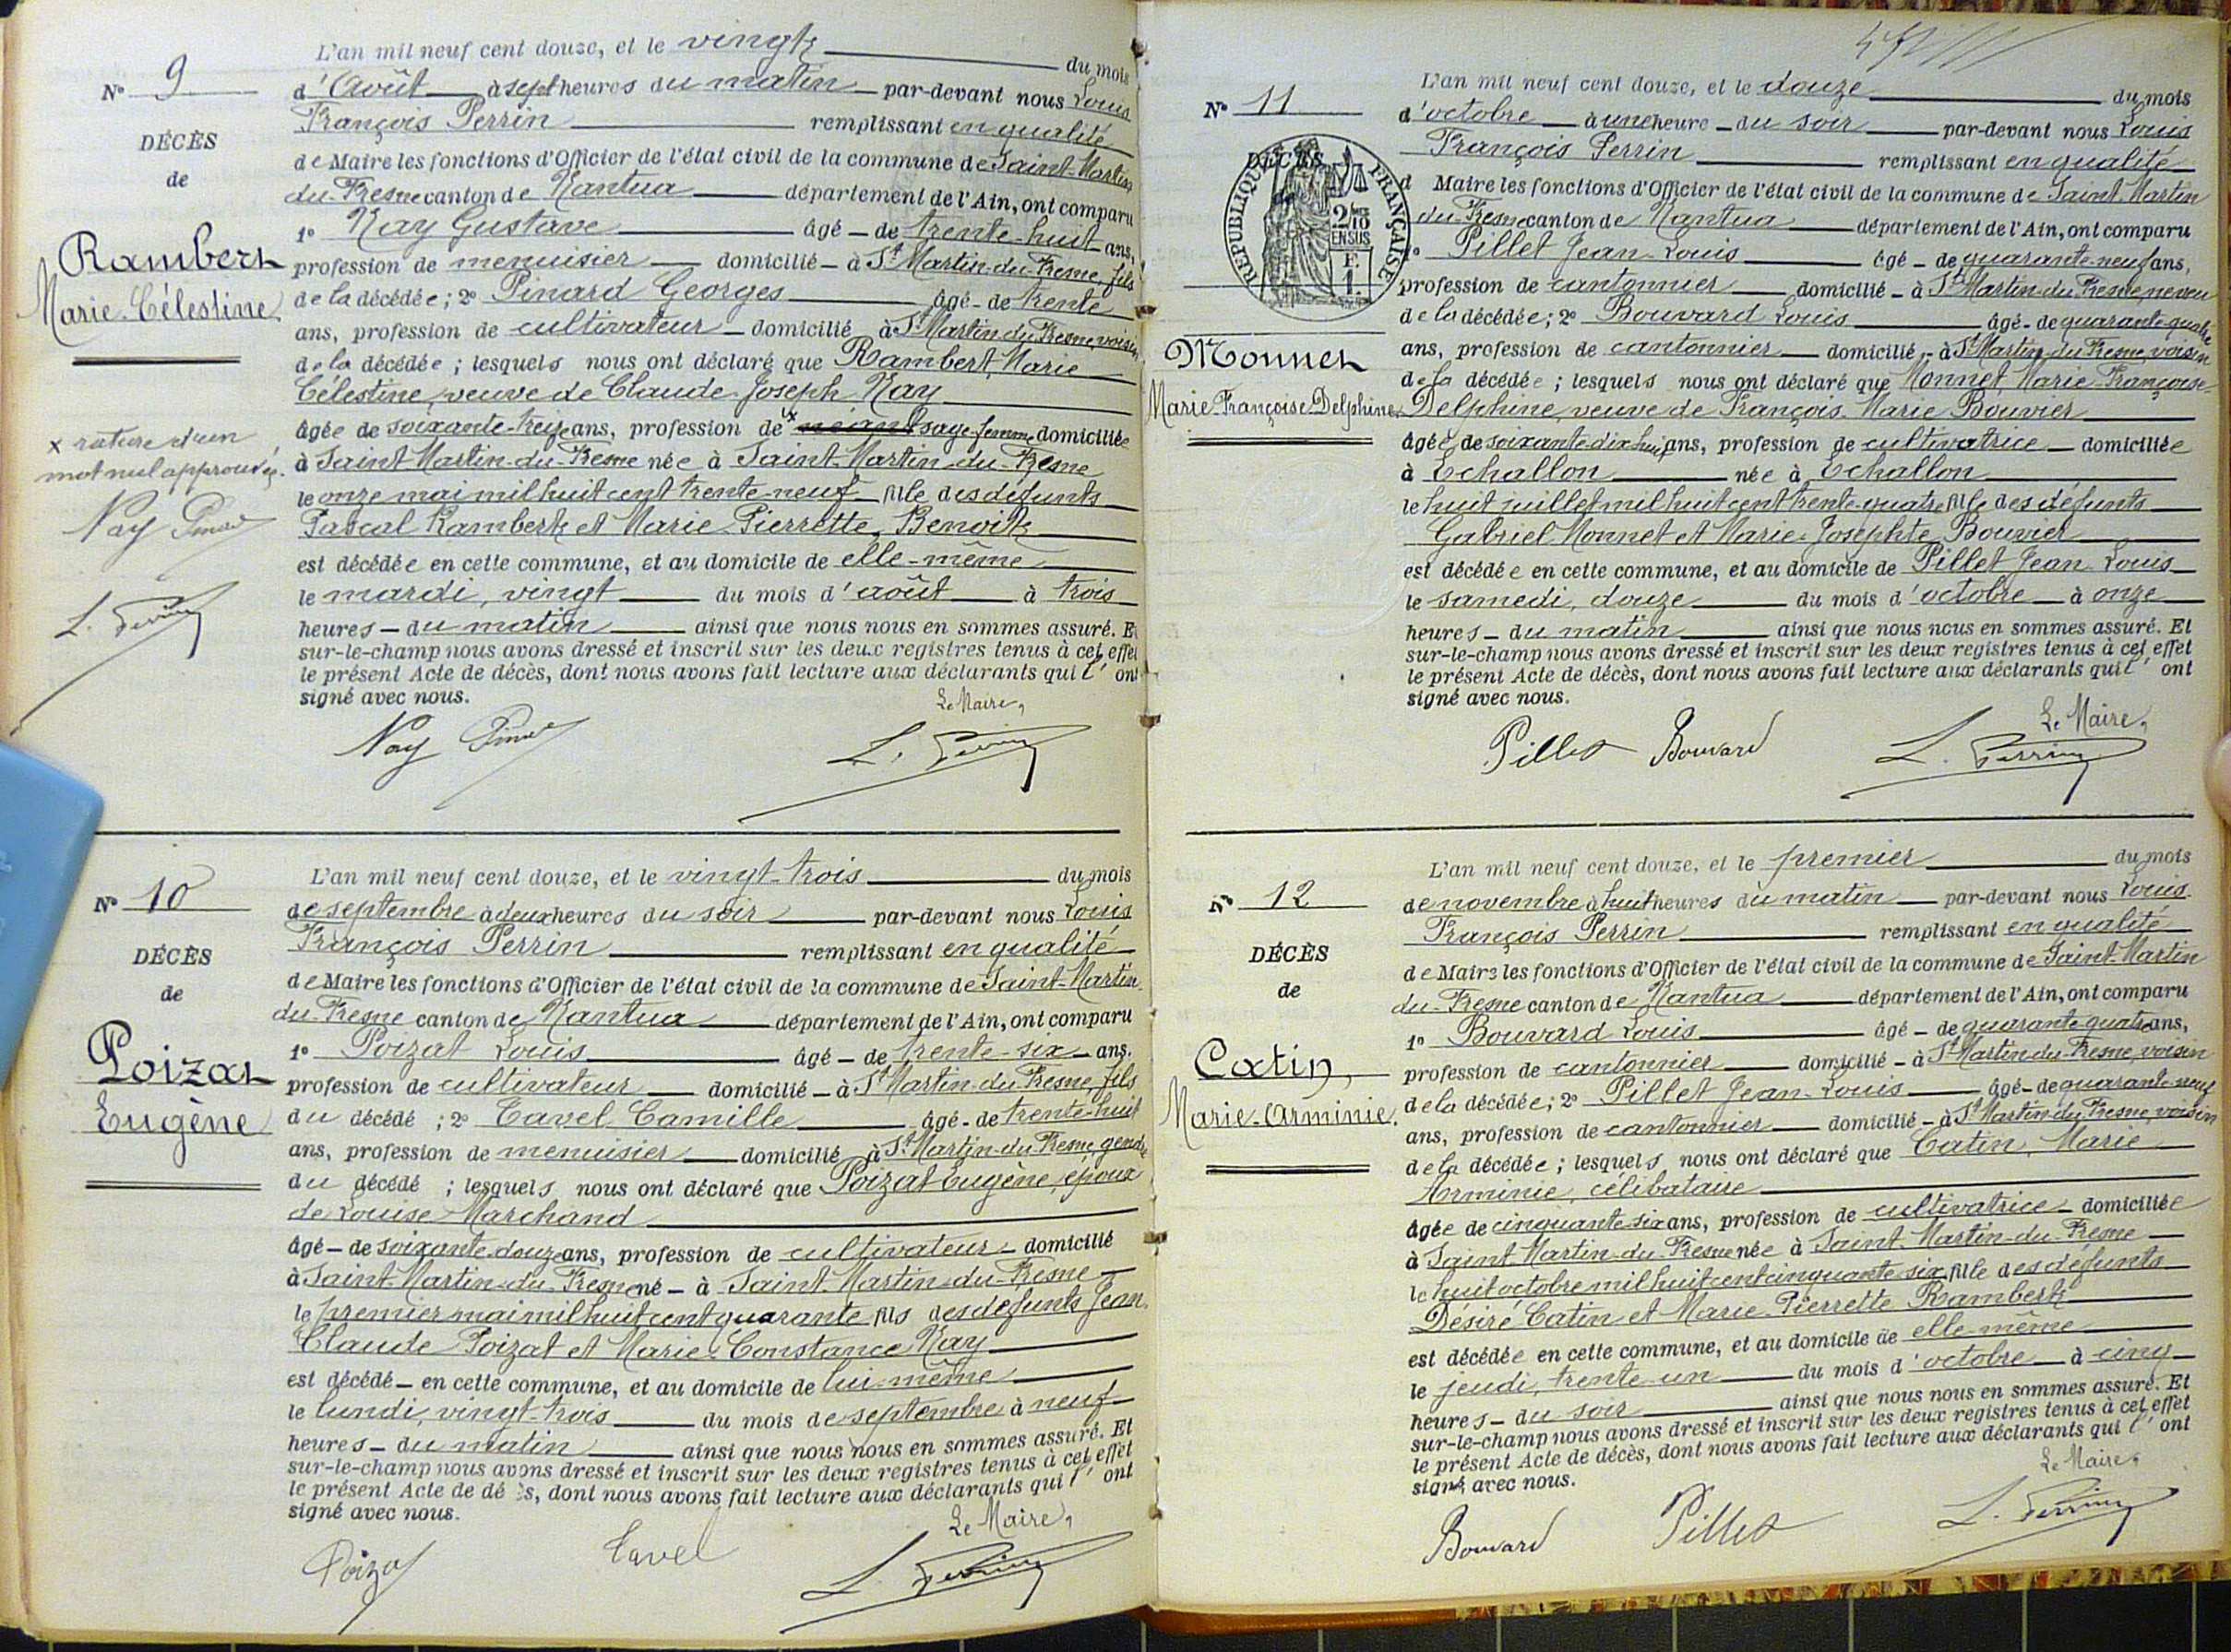 N° 9
DÉCÈS
de
Rambert
Marie-Célestine
x rature d'un
mot nul approuvée.
Nay Pinard
L. Perrin
L'an mil neuf cent douze, et le vingt du mois
d'Août à sept heures du matin par-devant nous Louis
François Perrin remplissant en qualité
de Maire les fonctions d'Officier de l'état civil de la commune de Saint-Martin
du-Fresne canton de Nantua département de l'Ain, ont comparu
1° Nay Gustave âgé de trente-huit ans,
profession de menuisier domicilié à St Martin-du-Fresne, fils
de la décédée; 2° Pinard Georges âgé de trente
ans, profession de cultivateur domicilié à St Martin du Fresne, voisin
de la décédée; lesquels nous ont déclaré que Rambert, Marie
Célestine, veuve de Claude-Joseph Nay
âgée de soixante-treize ans, profession de x néant sage-femme domiciliée
à Saint Martin-du-Fresne née à Saint-Martin-du-Fresne
le onze mai mil huit cent trente-neuf fille des défunts
Pascal Rambert et Marie-Pierrette Benoit
est décédée en cette commune, et au domicile de elle-même
le mardi, vingt du mois d'août à trois
heures du matin ainsi que nous nous en sommes assuré. Et
sur-le-champ nous avons dressé et inscrit sur les deux registres tenus à cet effet
le présent Acte de décès, dont nous avons fait lecture aux déclarants qui l'ont
signé avec nous.
Le Maire,
Nay Pinard L. Perrin
N° 10
DÉCÈS
de
Poizat
Eugène
L'an mil neuf cent douze, et le vingt-trois du mois
de septembre à deux heures du soir par-devant nous Louis
François Perrin remplissant en qualité
de Maire les fonctions d'Officier de l'état civil de la commune de Saint-Martin
du-Fresne canton de Nantua département de l'Ain, ont comparu
1° Poizat Louis âgé de trente-six ans.
profession de cultivateur domicilié à St Martin-du-Fresne, fils
du décédé; 2° Tavel Camille âgé de trente-huit
ans, profession de menuisier domicilié à St Martin-du-Fresne, gendre
du décédé; lesquels nous ont déclaré que Poizat Eugène, époux
de Louise Marchand
âgé de soixante-douze ans, profession de cultivateur domicilié
à Saint-Martin-du-Fresne né à Saint-Martin-du-Fresne
le premier mai mil huit cent quarante fils des défunts Jean
Claude Poizat et Marie-Constance Nay
est décédé en cette commune, et au domicile de lui-même
le lundi, vingt-trois du mois de septembre à neuf
heures du matin ainsi que nous nous en sommes assuré. Et
sur-le-champ nous avons dressé et inscrit sur les deux registres tenus à cet effet
le présent Acte de dé ès, dont nous avons fait lecture aux déclarants qui l'ont
signé avec nous.
Le Maire,
Poizat Tavel L. Perrin
N° 11
DÉCÈS
RÉPUBLIQUE FRANÇAISE
2/10
EN SUS
F.
1.
Monnet
Marie-Françoise-Delphine
L'an mil neuf cent douze, et le douze du mois
d'octobre à une heure du soir par-devant nous Louis
François Perrin remplissant en qualité
d Maire les fonctions d'Officier de l'état civil de la commune de Saint-Martin
du-Fresne canton de Nantua département de l'Ain, ont comparu
1° Pillet Jean-Louis âgé de quarante-neuf ans,
profession de cantonnier domicilié à St Martin-du-Fresne neveu
de la décédée; 2° Bouvard Louis âgé de quarante-quatre
ans, profession de cantonnier domicilié à St Martin-du-Fresne, voisin
de la décédée; lesquels nous ont déclaré que Monnet, Marie-Françoise-
Delphine, veuve de François-Marie Bouvier
âgée de soixante-dix-huit ans, profession de cultivatrice domiciliée
à Echallon née à Echallon
le huit juillet mil huit cent trente-quatre fille des défunts
Gabriel Monnet et Marie-Josephte Bouvier
est décédée en cette commune, et au domicile de Pillet Jean-Louis
le samedi, douze du mois d'octobre à onze
heures du matin ainsi que nous nous en sommes assuré. Et
sur-le-champ nous avons dressé et inscrit sur les deux registres tenus à cet effet
le présent Acte de décès, dont nous avons fait lecture aux déclarants qui l'ont
signé avec nous.
Le Maire,
Pillet Bouvard L. Perrin
N° 12
DÉCÈS
de
Catin,
Marie-Arminie.
L'an mil neuf cent douze, et le premier du mois
de novembre à huit heures du matin par-devant nous Louis
François Perrin remplissant en qualité
de Maire les fonctions d'Officier de l'état civil de la commune de Saint-Martin
du-Fresne canton de Nantua département de l'Ain, ont comparu
1° Bouvard Louis âgé de quarante-quatre ans,
profession de cantonnier domicilié à St Martin-du-Fresne, voisin
de la décédée; 2° Pillet Jean-Louis âgé de quarante-neuf
ans, profession de cantonnier domicilié à St Martin-du-Fresne, voisin
de la décédée; lesquels nous ont déclaré que Catin, Marie
Arminie, célibataire
âgée de cinquante-six ans, profession de cultivatrice domiciliée
à Saint-Martin-du-Fresne née à Saint-Martin-du-Fresne
le huit octobre mil huit cent cinquante-six fille des défunts
Désiré Catin et Marie-Pierrette Rambert
est décédée en cette commune, et au domicile de elle-même
le jeudi, trente-un du mois d'octobre à cinq
heures du soir ainsi que nous nous en sommes assuré. Et
sur-le-champ nous avons dressé et inscrit sur les deux registres tenus à cet effet
le présent Acte de décès, dont nous avons fait lecture aux déclarants qui l'ont
signé avec nous.
Le Maire,
Bouvard Pillet L. Perrin